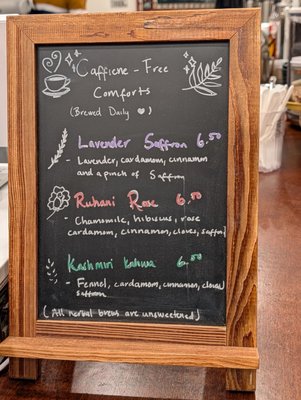 Caffiene - Free
Comforts
(Brewed Daily ♥)
Lavender Saffron 6.50
- Lavender, cardamom, cinnamon
and a pinch of Saffron
Ruhani Rose 6.50
- Chamomile, hibiscus, rose
cardamom, cinnamon, cloves, saffron
Kashmiri kahwa 6.50
- Fennel, cardamom, cinnamon, cloves
saffron
(All herbal brews are unsweetened)